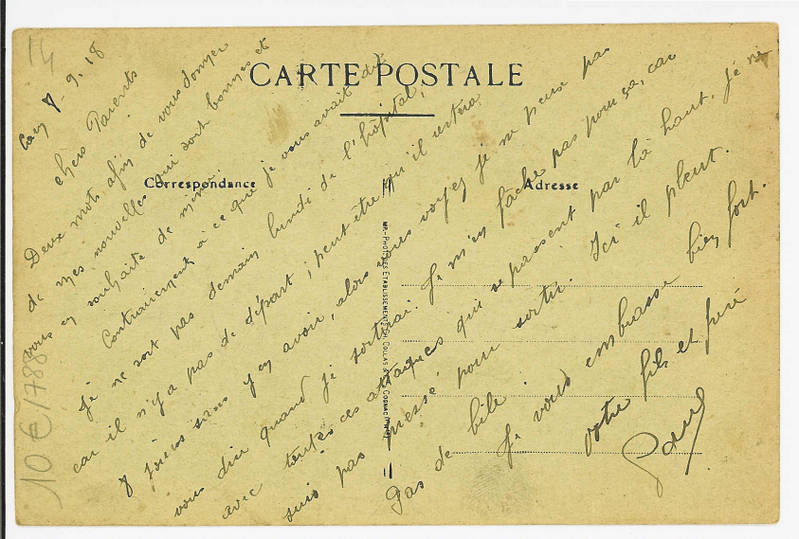 14
CARTE POSTALE
Correspondance
Adresse
IMP.-PHOT. DES ETABLISSEMENTS CH. COLLAS & Cie COGNAC
8-9-18
chers Parents
Deux mots afin de vous donner
de mes nouvelles qui sont bonnes et
vous en souhaite de même.
Contrairement à ce que je vous avait dit
Je ne sort pas demain lundi de l'hôpital,
car il n'y a pas de départ; peut être qu'il restera
8 jours sans y en avoir, alors vous voyez je ne peux pas
vous dire quand je sortirai. Je m'en fache pas pour ça, car
avec toutes ces attaques qui se passent par là haut, Je ne
suis pas pressé pour sortir. Ici il pleut.
Pas de bile.
Je vous embrasse bien fort.
votre fils et frère
Paul
10€/1788